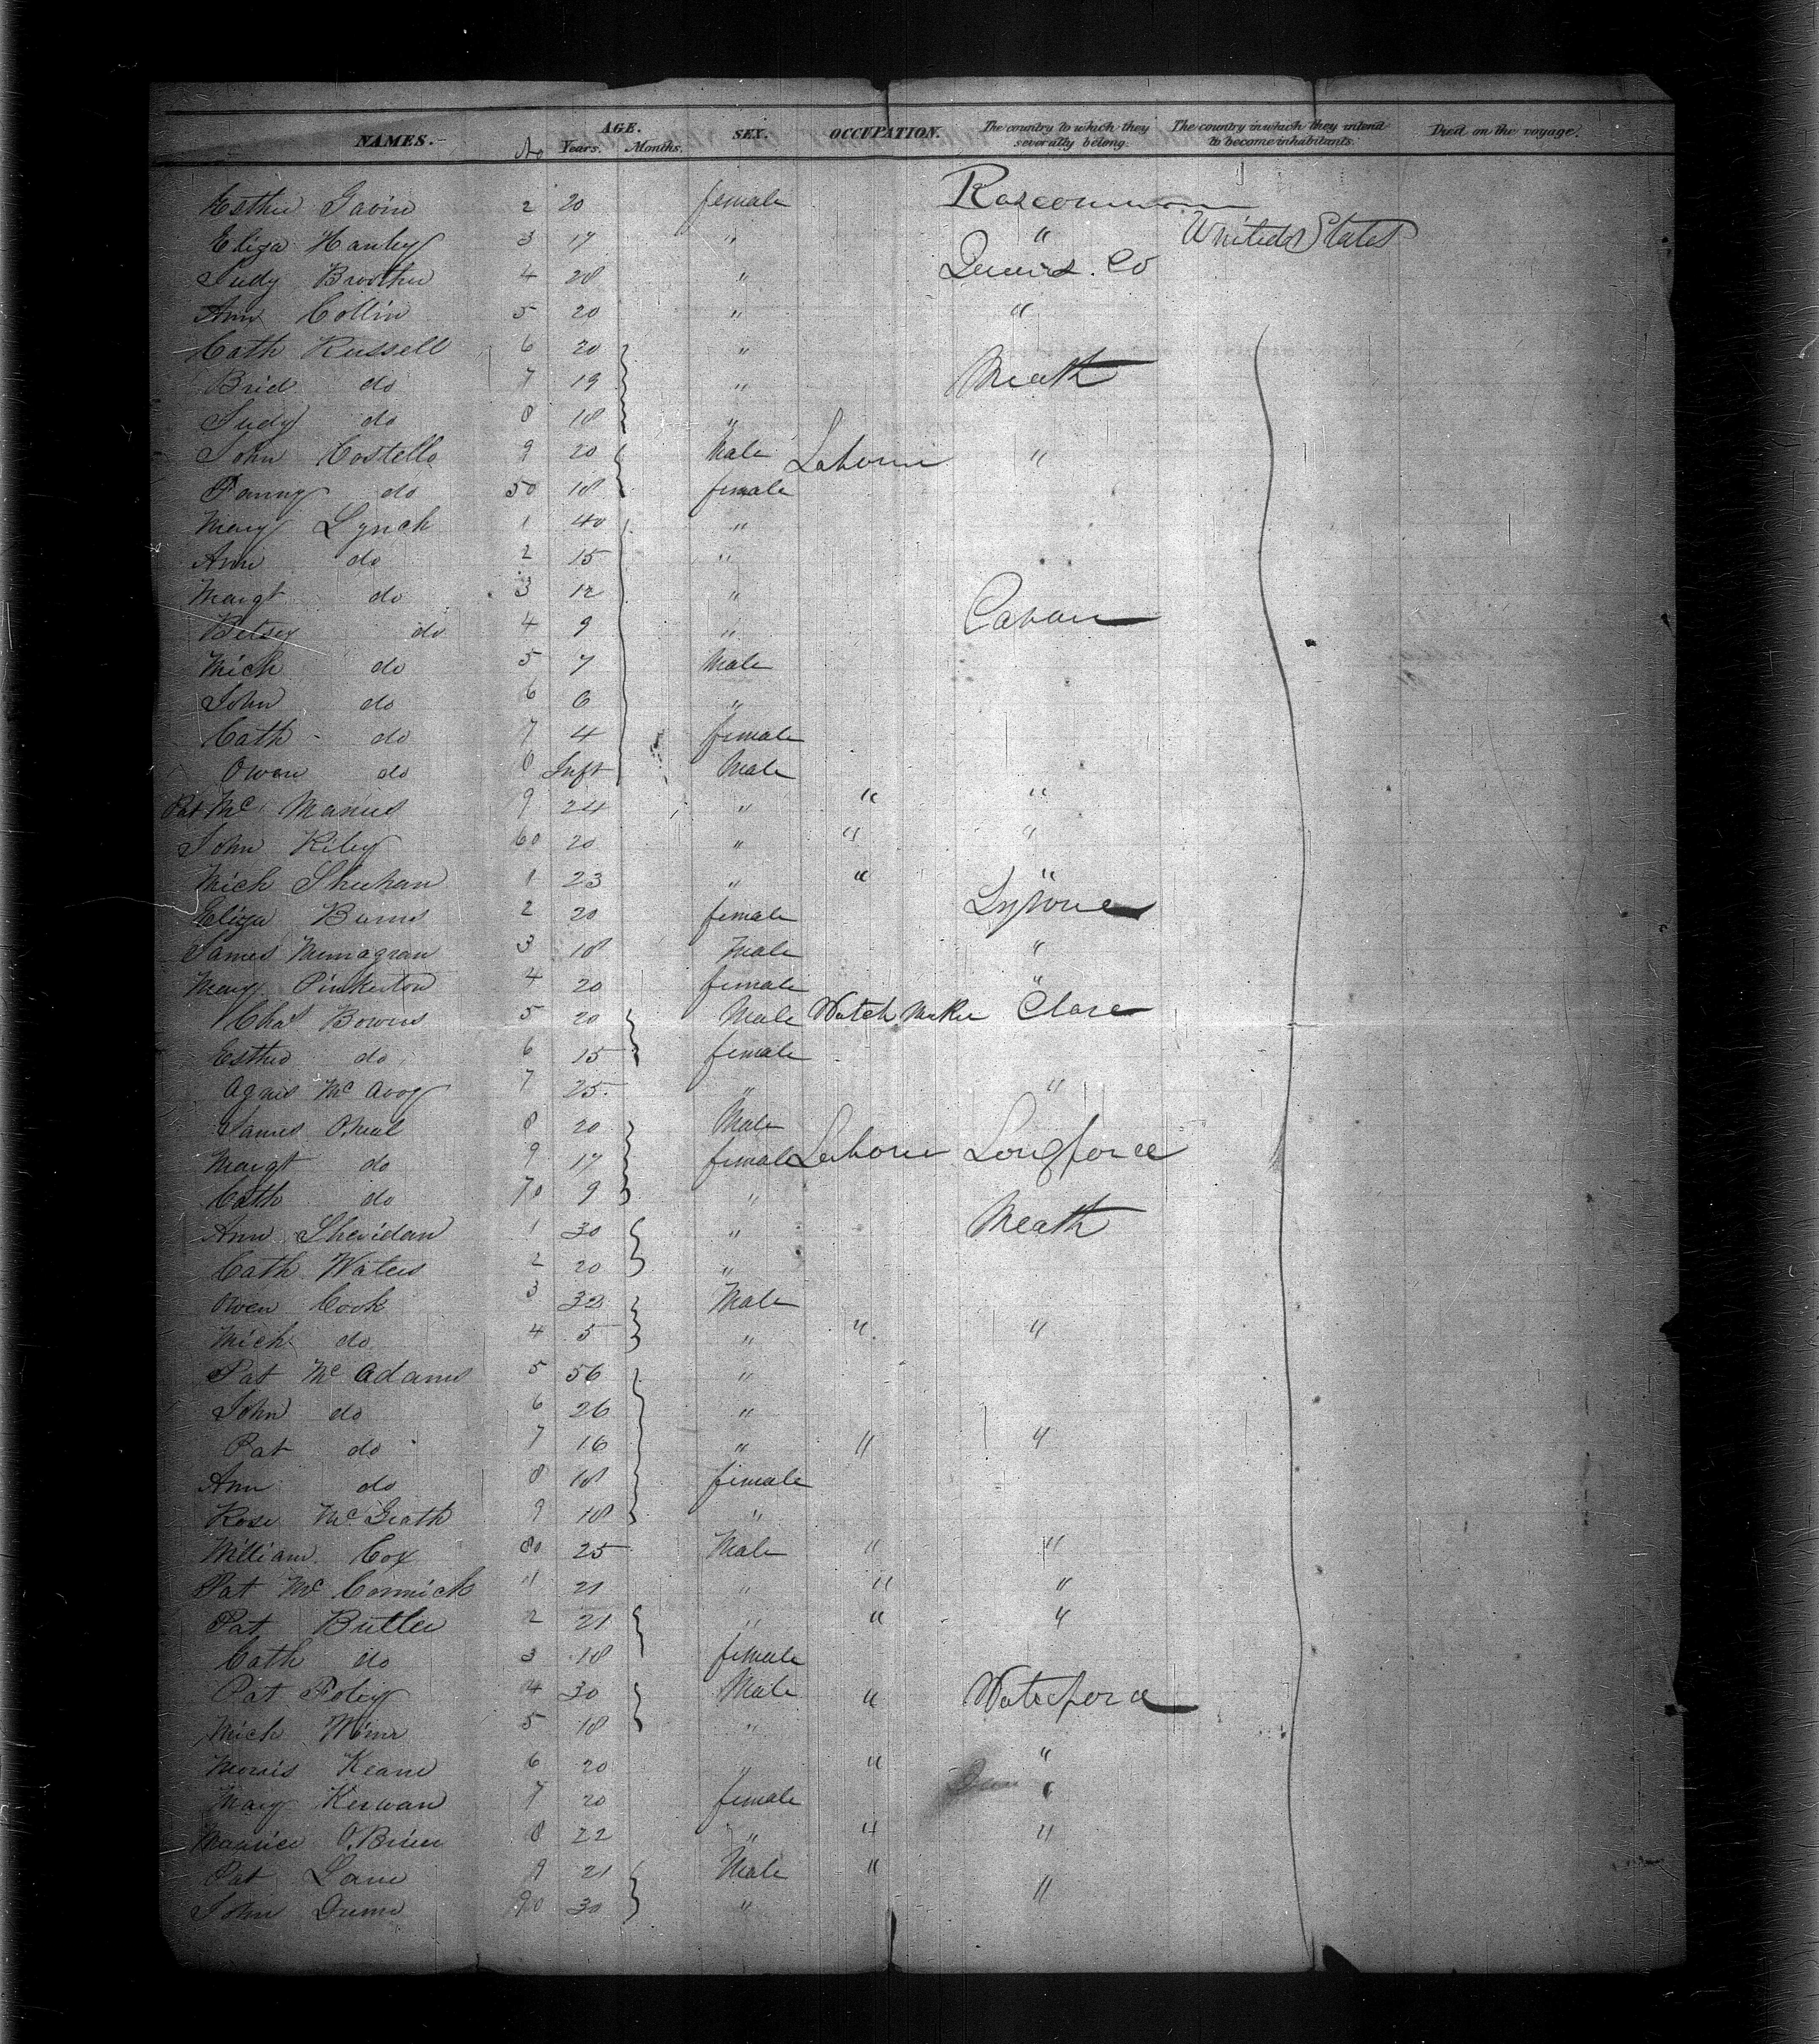 NAMES. No AGE. Years. Months. SEX. OCCUPATION. The country to which they severally belong. The country in which they intend to become inhabitants. Died on the voyage.
Esther Gavin 2 20 female Roscommon
Eliza Hanley 3 17 " " United States
Judy 4 28 " Queens Co
Ann Collin 5 20 " "
Cath Russell 6 20 "
Brid do 7 19 " Meath
Judy do 8 18 "
John Costello 9 20 Male Laborer "
Fanny do 50 18 female
Mary Lynch 1 40 "
Ann do 2 15 "
Margt do 3 12 "
Betsey do 4 9 " Cavan
Mich do 5 7 Male
John do 6 6 "
Cath do 7 4 female
Owen do 8 Inft Male
Pat Mc Manus 9 24 " " "
John Riley 60 20 " " "
Mich Shuhan 1 23 " " "
Eliza Burns 2 20 female Tyrone
James 3 18 Male "
Mary Pinkerton 4 20 female "
Chas Bowers 5 20 Male Watch Maker Clare
Esther do 6 15 female
Agnes Mc Avoy 7 25 " "
James O.Neal 8 20 Male
Margt do 9 17 female Laborer Longford
Cath do 70 9 "
Ann Sheridan 1 30 " Meath
Cath Waters 2 20 "
Owen Cook 3 32 Male
Mich do 4 5 " " "
Pat Mc Adams 5 56 "
John do 6 26 "
Pat do 7 16 " " "
Ann do 8 18 female
Rose Mc Grath 9 18 "
William Cox 80 25 Male " "
Pat Mc Cormick 21 " " "
Pat Butler 2 21 " " "
Cath do 3 18 female
Pat Foley 4 30 Male " Waterford
Mich 5 18 "
Morris Keane 6 20 " " "
Mary Kerwan 7 20 female "
Maurice O.Brien 8 22 " " "
Pat Lane 9 21 Male "
John Dunn 90 30 " "